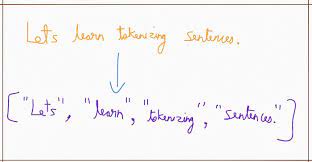 Lets learn tokenizing sentences.
["Lets", "learn", "tokenizing", "sentences."]